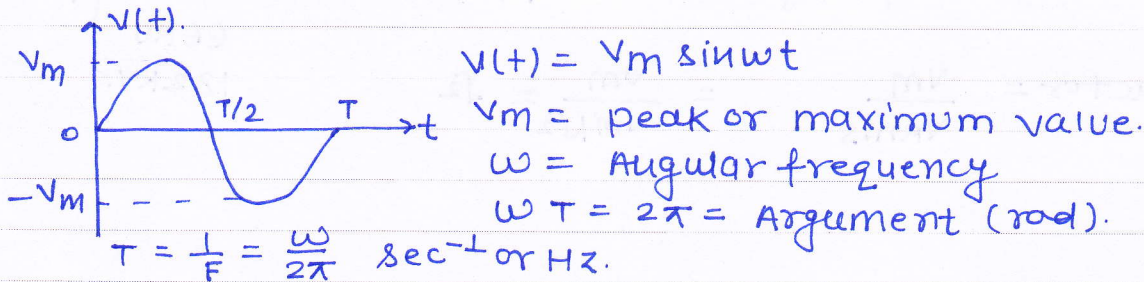 V(t).
Vm
V(t) = Vm sinωt
T/2
T
0
t
Vm = peak or maximum value.
ω = Augular frequency
-Vm
ωT = 2π = Argument (rad).
T = 1/F = ω/2π sec⁻¹ or Hz.